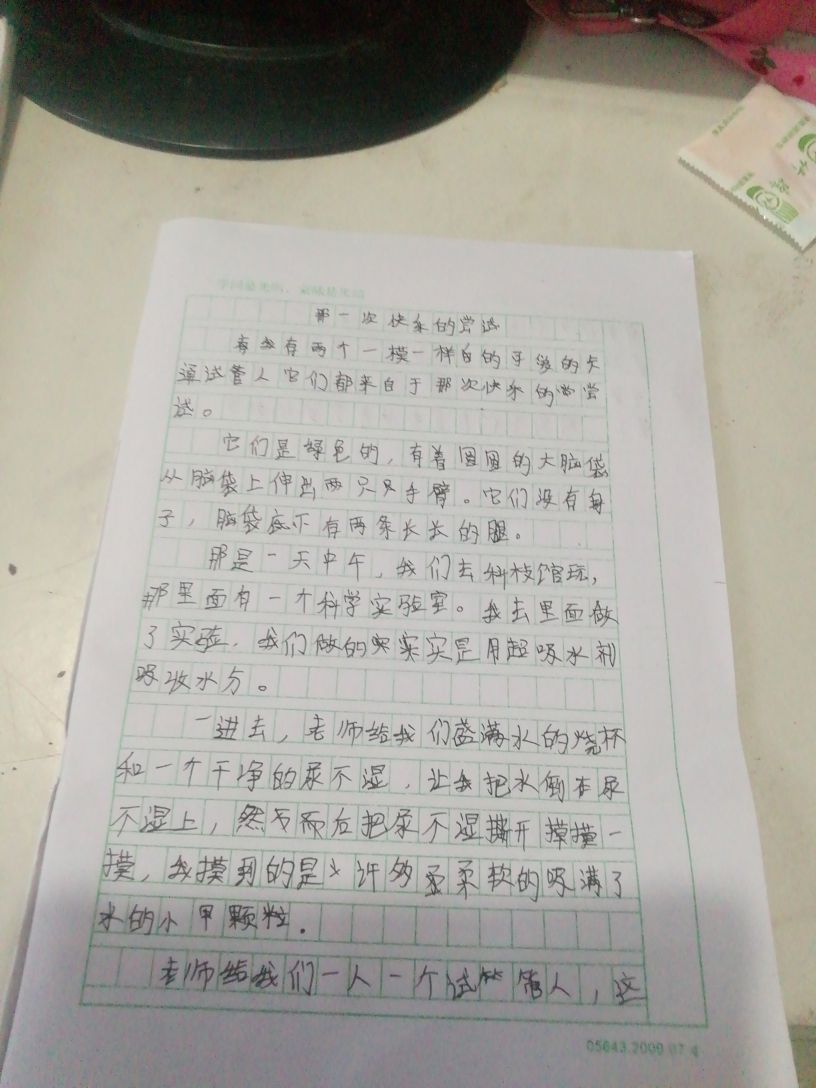 那一次快乐的尝试
我有两个一模一样的的手的卡
通试管人它们都来自于那次快乐的尝
试。
它们是绿色的,有着圆圆的大脑袋
从脑袋上伸出两只只手臂。它们没有身
子,脑袋底下有两条长长的腿。
那是一天中午,我们去科技馆玩,
那里面有一个科学实验室。我去里面做
了实验.我们做的实实是用超吸水剂
吸收水分。
一进去,老师给我们盛满水的烧杯
和一个干净的尿不湿,让我把水倒在尿
不湿上,然而后把尿不湿撕开摸摸一
摸,我摸到的是许多柔软的吸满了
水的小颗粒.
老师给我们一人一个试管人,这
05643.2009.07.4